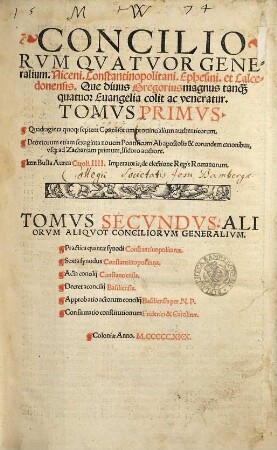 15 M W 74
CONCILIO
RVM QVATVOR GENE
ralium. Niceni. Constantinopolitani. Ephesini. et Calce
donensis. Que diuus Gregorius magnus tanq̃
quatuor Euangelia colit ac veneratur.
TOMVS PRIMVS.
Quadraginta quoq; septem Conciliorum prouincialium authenticorum.
Decretorum etiam sexaginta nouem Pontificum Ab apostolis & eorundem canonibus,
vsq; ad Zachariam primum, Isidoro authore.
Item Bulla Aurea Caroli IIII. Imperatoris, de electione Regis Romanorum.
Collegii Societatis Jesu Bambergę
TOMVS SECVNDVS. ALI
ORVM ALIQVOT CONCILIORVM GENERALIVM.
Practica quintę synodi Constantinopolitanę.
Sexta synodus Constantinopolitana.
Acta concilij Constantiensis.
Decreta concilij Basiliensis.
Approbatio actorum concilij Basiliensis per N. P.
Confirmatio constitutionum Friderici & Carolinæ.
Coloniæ Anno. M.CCCCC.XXX.